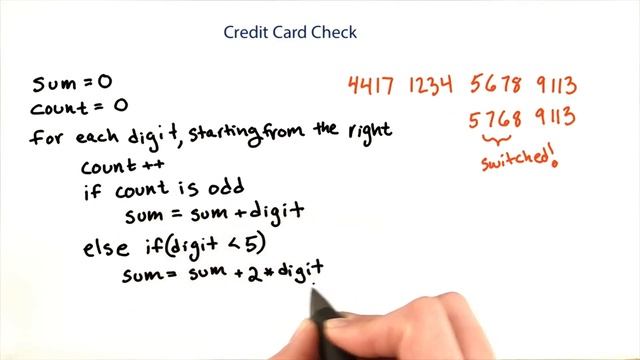 Credit Card Check
sum = 0
count = 0
for each digit, starting from the right
count ++
if count is odd
sum = sum + digit
else if (digit < 5)
sum = sum + 2 * digit
4417 1234 5678 9113
5768 9113
switched!